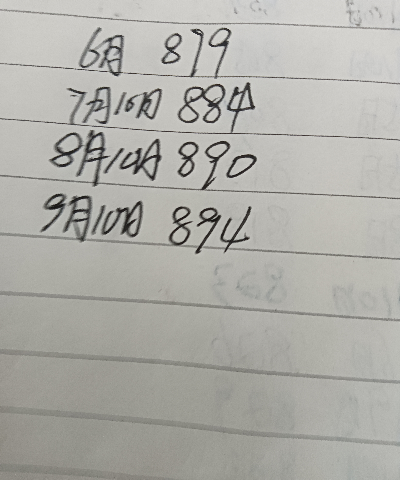 6月 879
7月10日 884
8月10日 890
9月10日 894